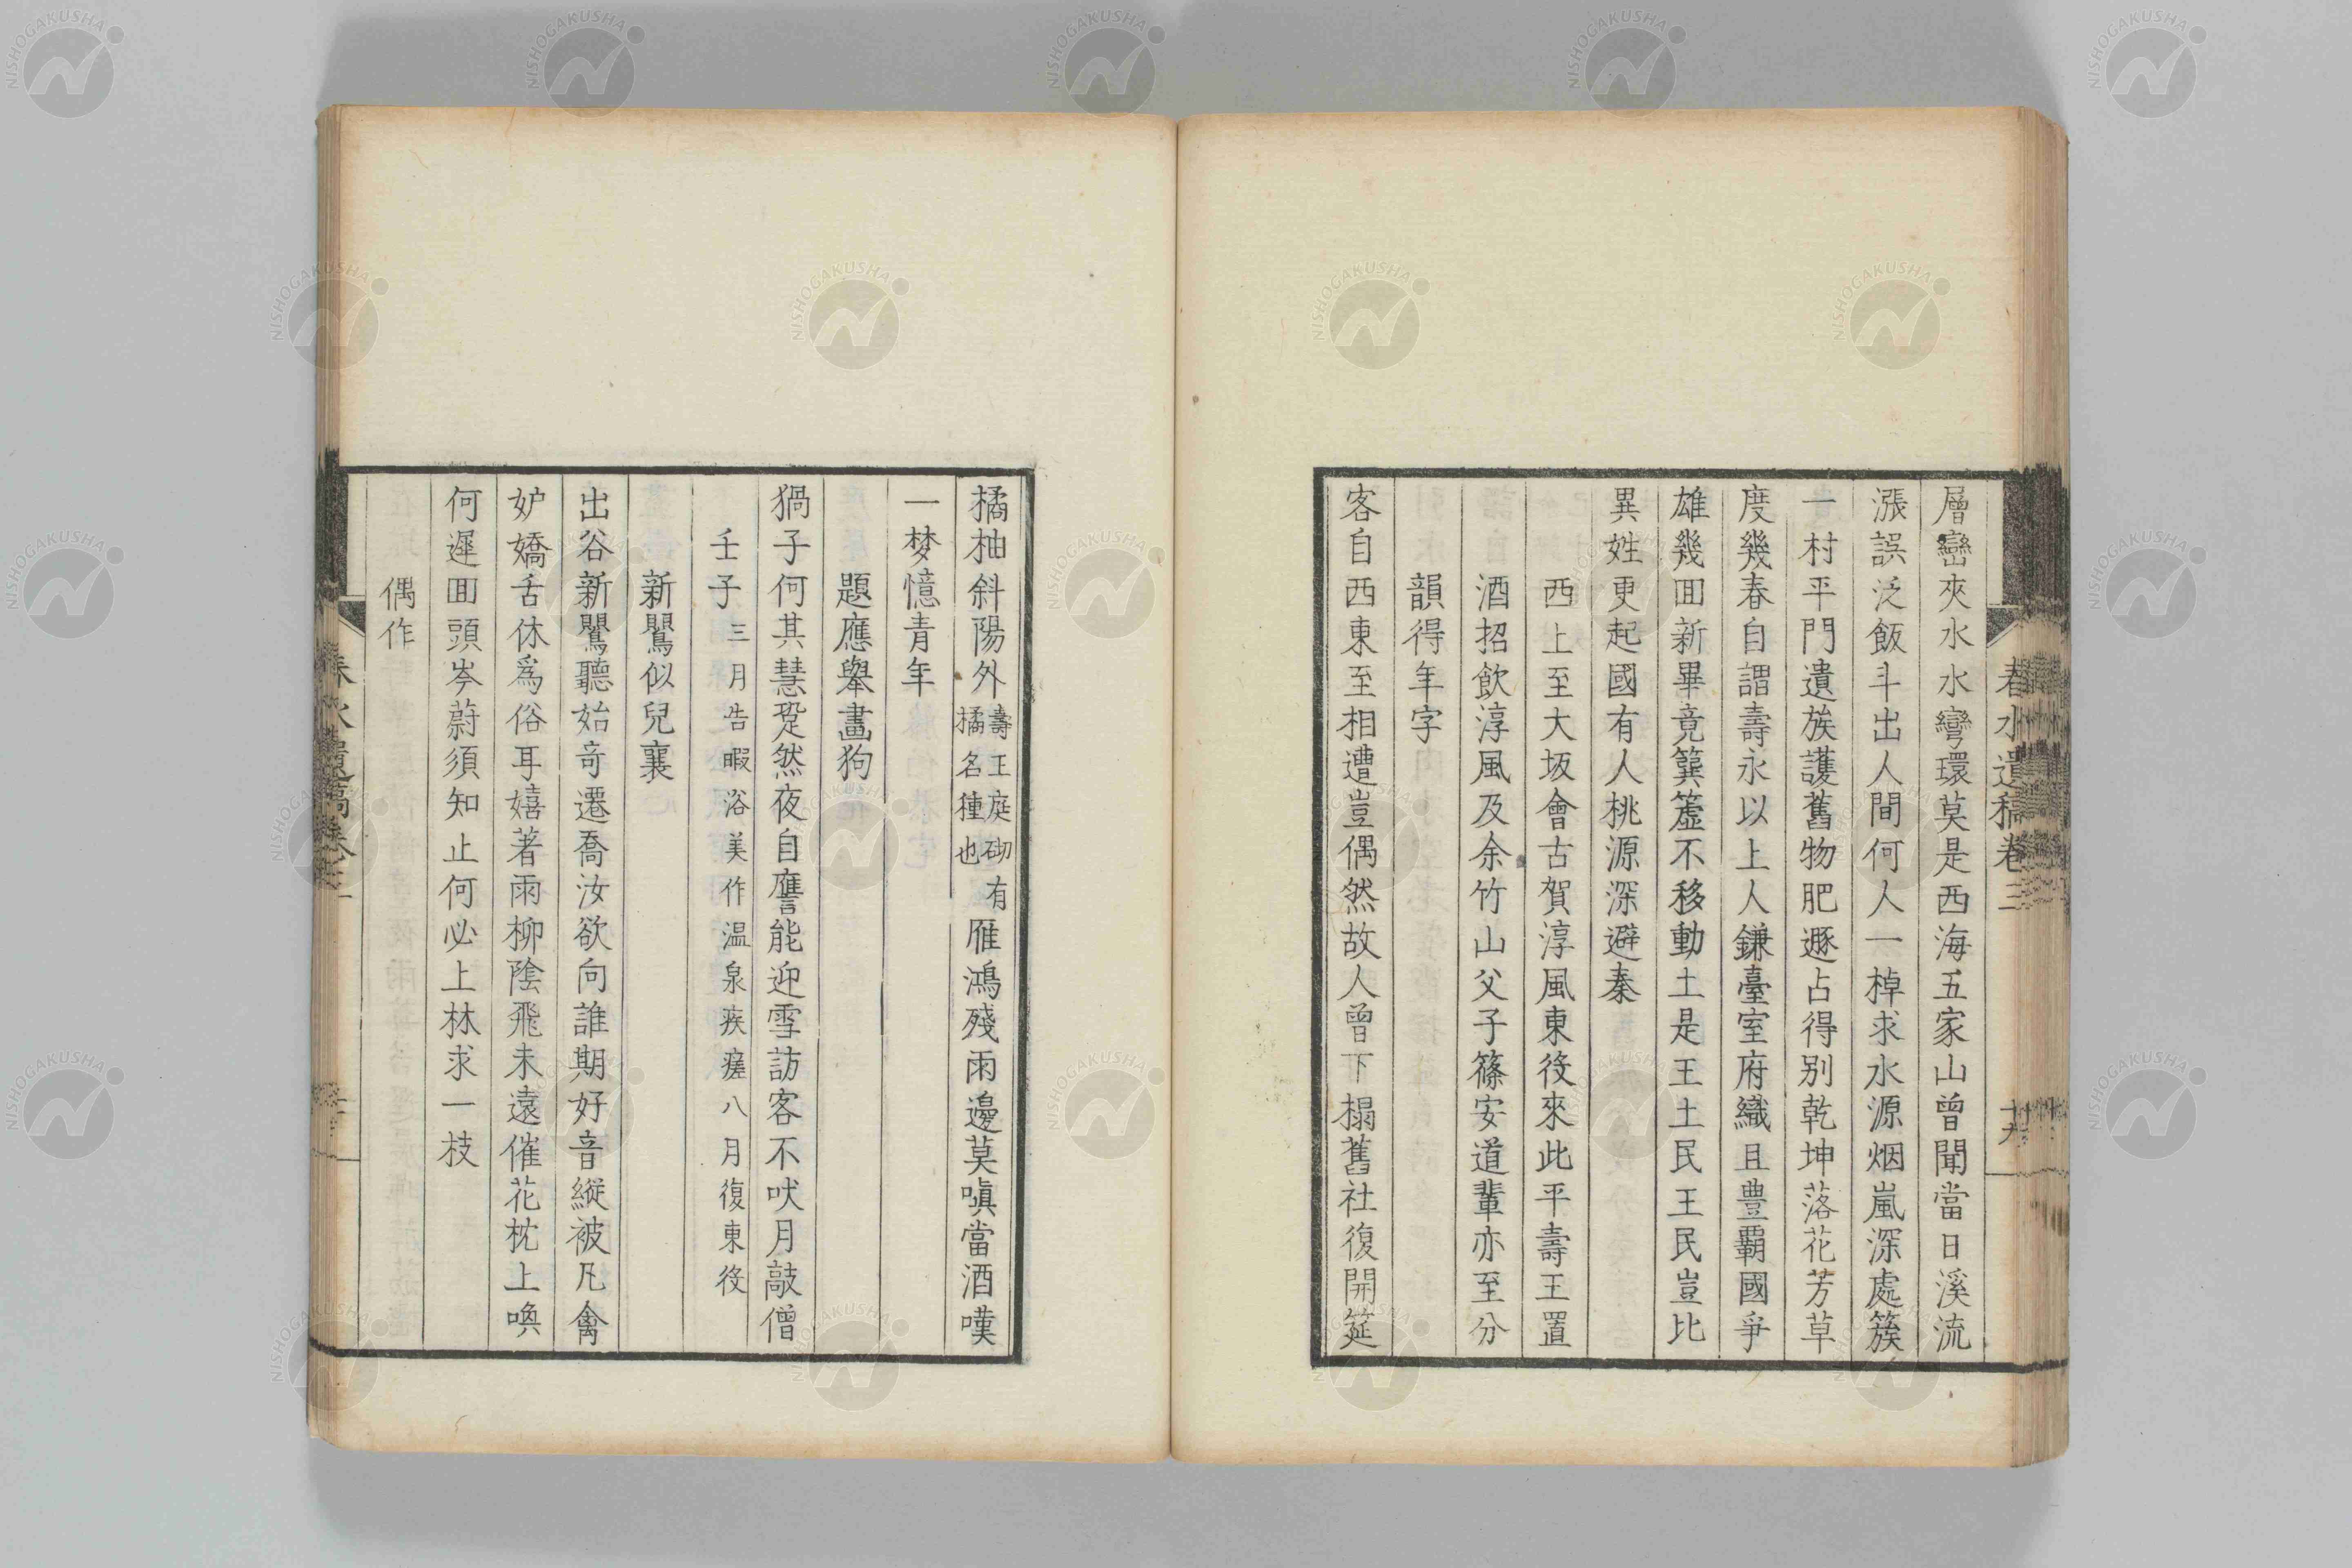 春水遺稿卷三
十九
層巒夾水水彎環莫是西海五家山曾聞當日溪流
漲誤泛飯斗出人間何人一棹求水源烟嵐深處簇
一村平門遺族護舊物肥遯占得別乾坤落花芳草
度幾春自謂壽永以上人鎌臺室府織且豊覇國爭
雄幾囬新畢竟簨簴不移動土是王土民王民豈比
異姓更起國有人桃源深避秦
西上至大坂會古賀淳風東役來此平壽王置
酒招飲淳風及余竹山父子篠安道輩亦至分
韻得年字
客自西東至相遭豈偶然故人曾下榻舊社復開筵
橘柚斜陽外壽王庭砌有橘名種也雁鴻殘雨邊莫嗔當酒嘆
一梦憶青年
題應擧畫狗
猧子何其慧跫然夜自譍能迎雪訪客不吠月敲僧
壬子三月告暇浴美作温泉疾瘥八月復東役
新鶯似兒襄
出谷新鶯聽始竒遷喬汝欲向誰期好音縱被凡禽
妒嬌舌休爲俗耳嬉著雨柳陰飛未遠催花枕上喚
何遲囬頭岑蔚須知止何必上林求一枝
偶作
春水遺稿卷三
NISHOGAKUSHA